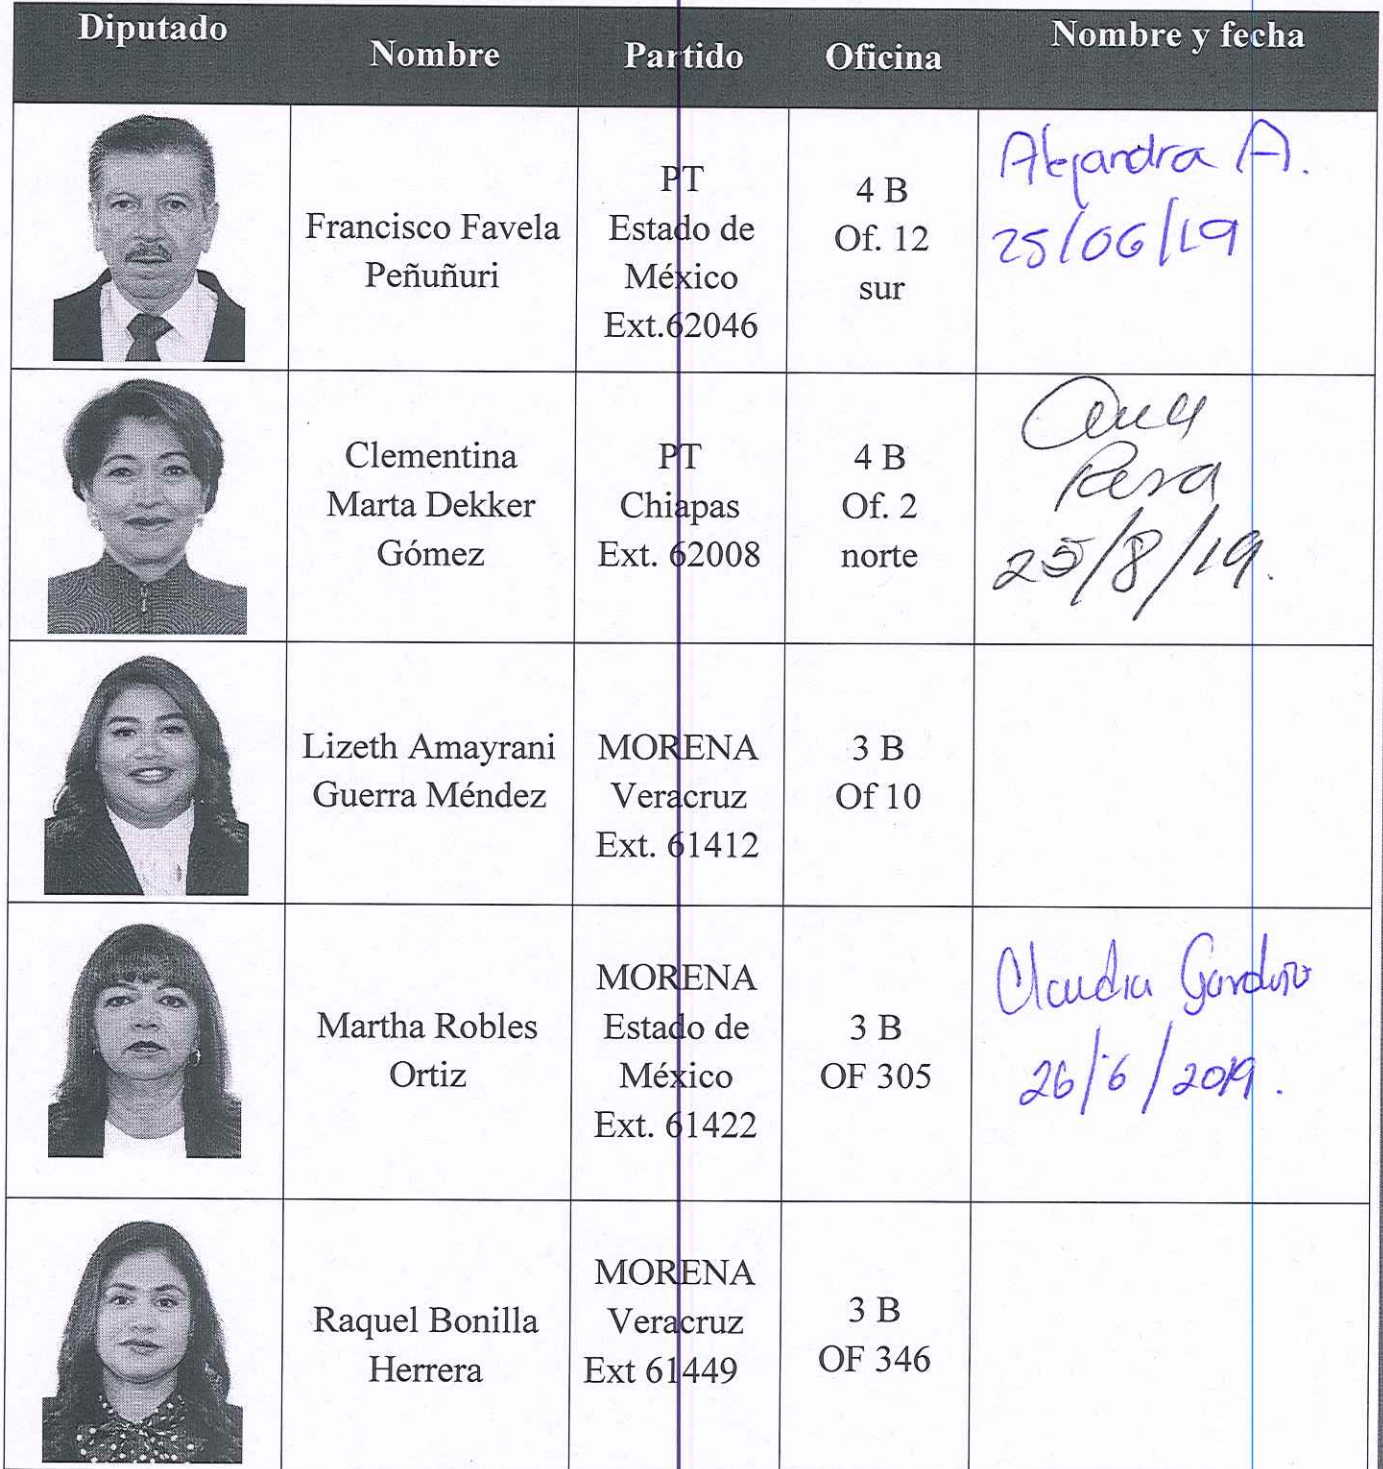 Diputado Nombre Partido Oficina Nombre y fecha
Francisco Favela
Peñuñuri
PT
Estado de
México
Ext.62046
4 B
Of. 12
sur
Alejandra A.
25/06/19
Clementina
Marta Dekker
Gómez
PT
Chiapas
Ext. 62008
4 B
Of. 2
norte
25/8/19.
Lizeth Amayrani
Guerra Méndez
MORENA
Veracruz
Ext. 61412
3 B
Of 10
Martha Robles
Ortiz
MORENA
Estado de
México
Ext. 61422
3 B
OF 305
Claudia Garduño
26/6/2019.
Raquel Bonilla
Herrera
MORENA
Veracruz
Ext 61449
3 B
OF 346